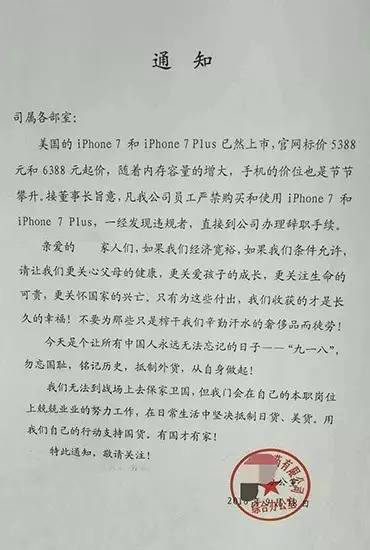 通知
司属各部室：
美国的 iPhone 7 和 iPhone 7 Plus 已然上市，官网标价 5388
元和 6388 元起价，随着内存容量的增大，手机的价位也是节节
攀升。接董事长旨意，凡我公司员工严禁购买和使用 iPhone 7 和
iPhone 7 Plus，一经发现违规者，直接到公司办理辞职手续。
亲爱的 家人们，如果我们经济宽裕，如果我们条件允许，
请让我们更关心父母的健康，更关爱孩子的成长，更关注生命的
可贵，更关怀国家的兴亡。只有为这些付出，我们收获的才是长
久的幸福！不要为那些只是榨干我们辛勤汗水的奢侈品而徒劳！
今天是个让所有中国人永远无法忘记的日子——“九一八”，
勿忘国耻，铭记历史，抵制外货，从自身做起！
我们无法到战场上去保家卫国，但我们会在自己的本职岗位
上兢兢业业的努力工作，在日常生活中坚决抵制日货、美货。用
我们自己的行动支持国货。有国才有家！
特此通知，敬请关注！
药有限公司
综合办公室
公室
日